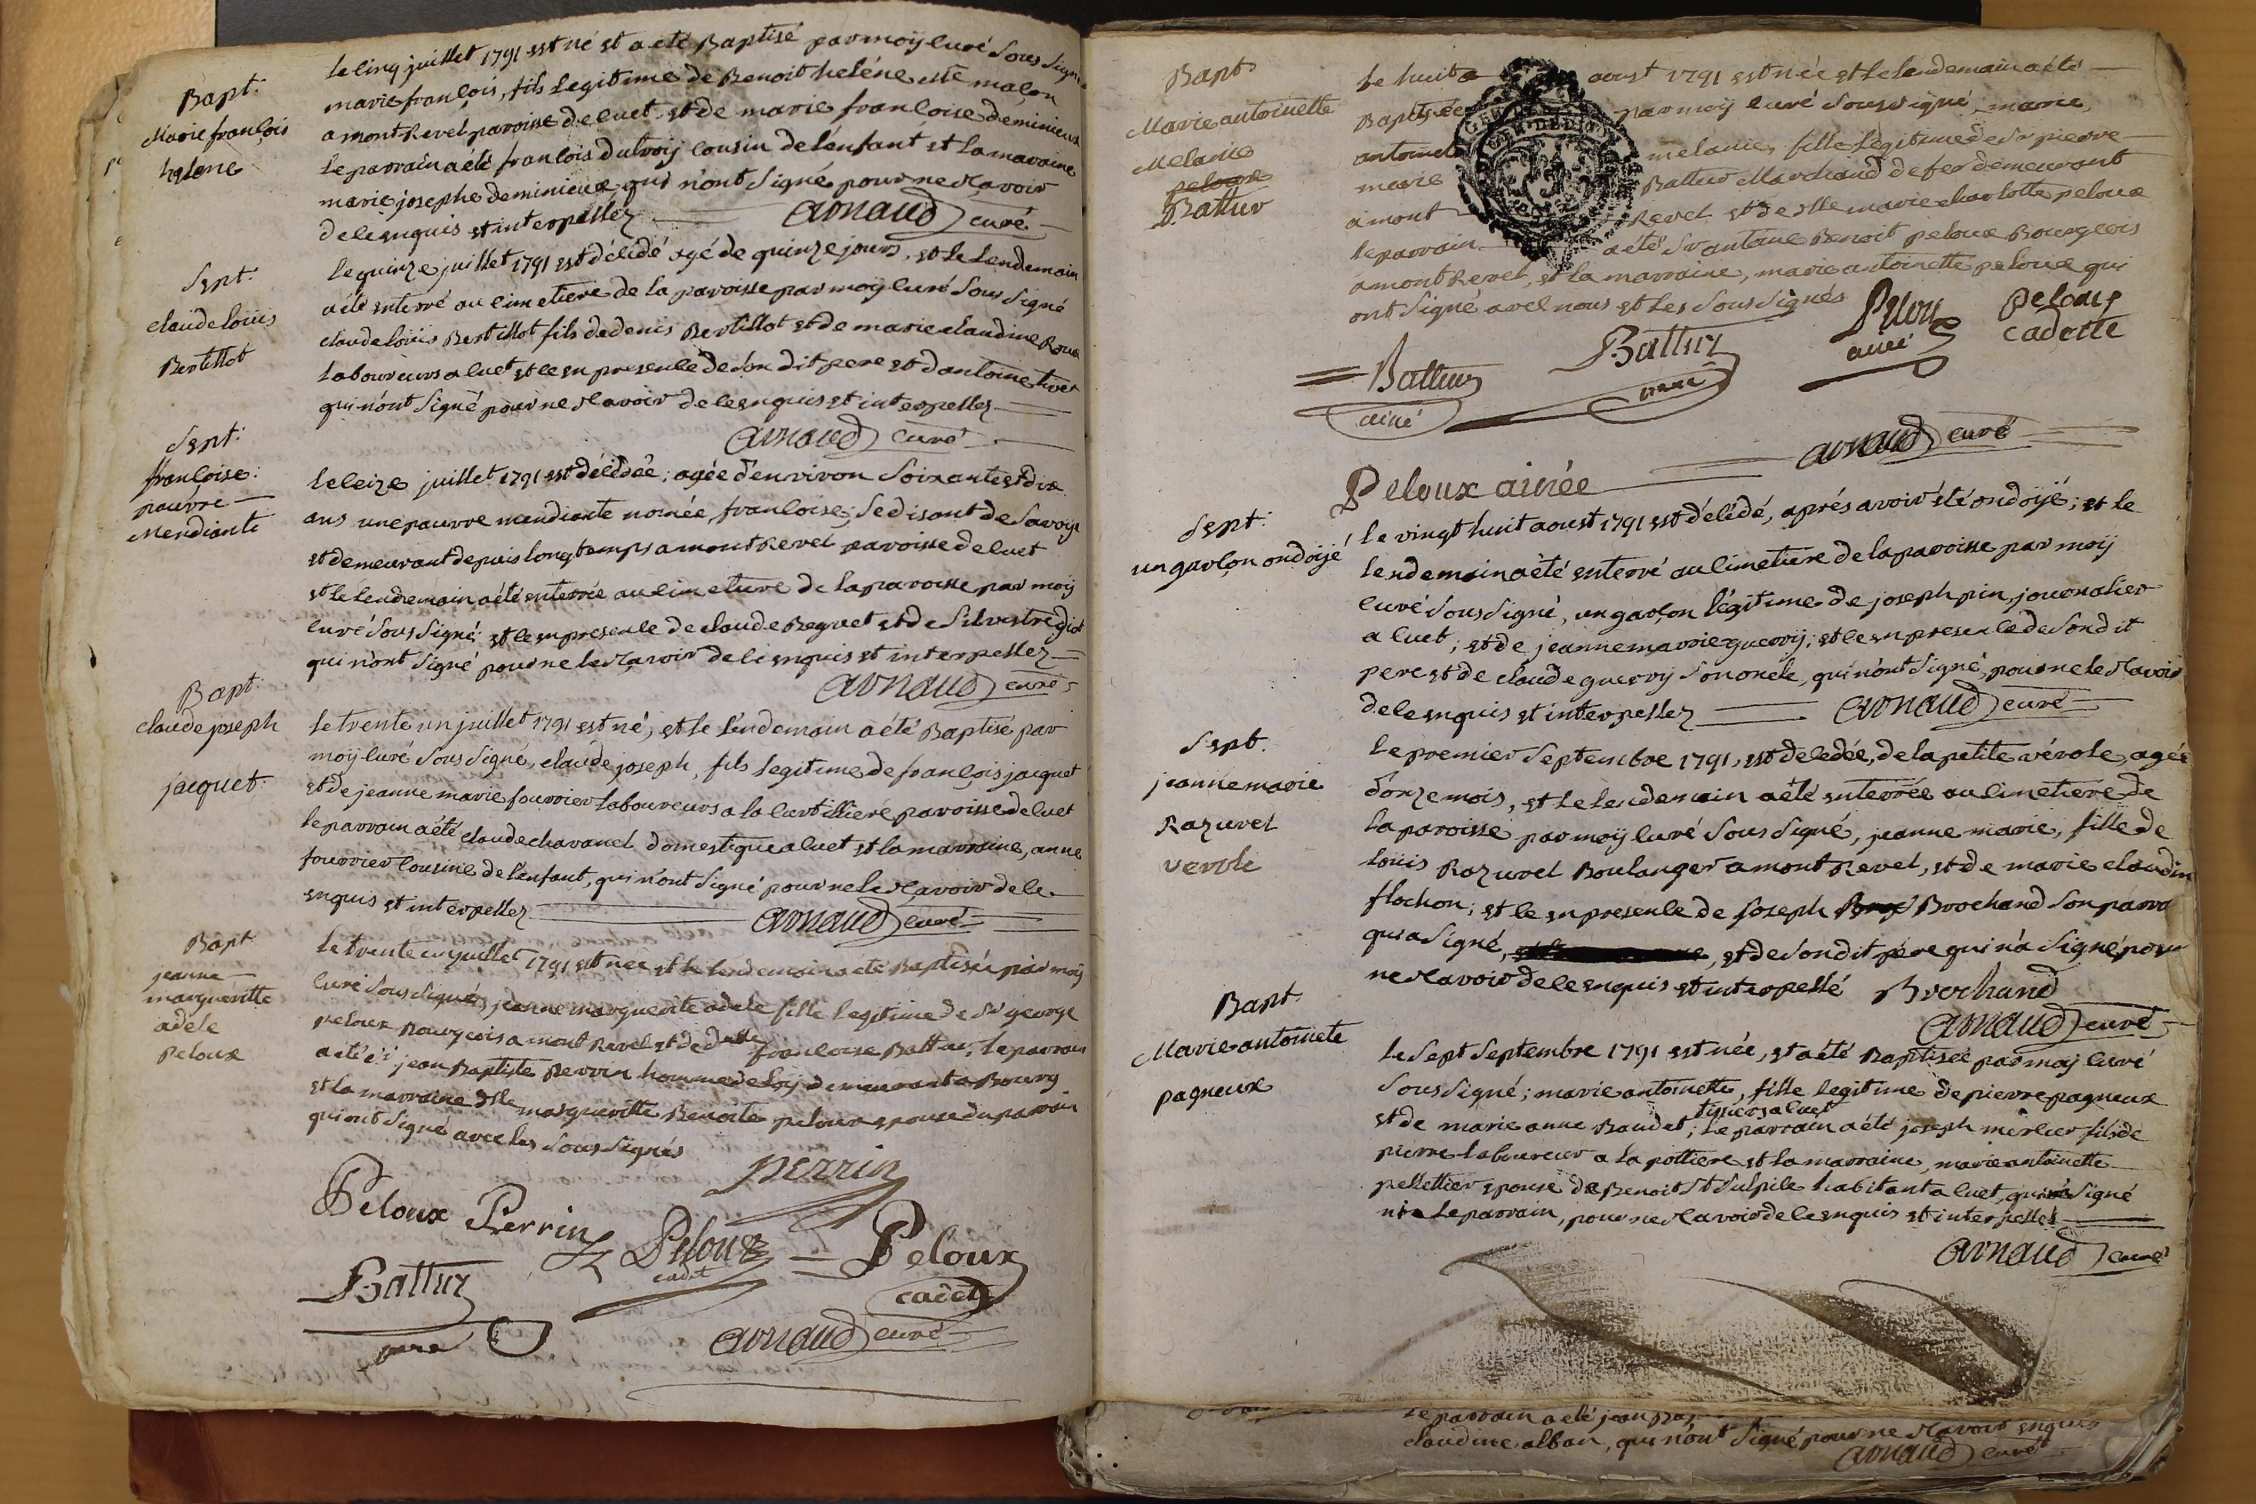 Bapt:
Marie françois
helene
le cinq juillet 1791 est né et a eté Baptisé par moÿ curé sous signé
marie françois, fils legitime de Benoit heléne maçon
a montRevel paroisse de cuet et de marie françoise deminieux
le parrain a eté françois dutroÿ cousin de l'enfant et la maraine
marie josephe deminieux qui n'ont signé pour ne sçavoir
de ce enquis et interpellez arnaud curé
Sept:
claude loüis
Bertillot
le quinze juillet 1791 est décédé agé de quinze jours, et le lendemain
a eté enterré au cimetiere de la paroisse par moÿ curé sous signé
claude loüis Bertillot fils de denis Bertillot et de marie claudine Roux
laboureurs a cuet et ce en presence de son dit pere et d'antoine
qui n'ont signé pour ne sçavoir de ce enquis et interpellez
arnaud curé
Sept:
françoise:
pauvre
Mendiante
le seize juillet 1791 est décédée; agée d'environ soixante et dix
ans une pauvre mendiante nomée, françoise; se disant de Savoye
et demeurant depuis longtemps a montRevel paroisse de cuet
et le lendemain a eté enterrée au cimetiere de la paroisse par moÿ
curé sous signé; et ce en presence de claude Reguet et de Silvestre
qui n'ont signé pour ne le sçavoir de ce enquis et interpellez
arnaud curé
Bapt:
claude joseph
jacquet
le trente un juillet 1791 est né, et le lendemain a été Baptisé par
moÿ curé sous signé, claude joseph, fils legitime de françois jacquet
et de jeanne marie fourrier laboureurs a la curtilliere paroisse de cuet
le parrain a été claude chavanel domestique a cuet et la marraine, anne
fourrier cousine de l'enfant, qui n'ont signé pour ne le sçavoir de ce
enquis et interpellez arnaud curé
Bapt
jeanne
margueritte
adele
Peloux
le trente un juillet 1791 est nee et le lendemain a eté Baptisée par moÿ
curé sous signé, jeanne marguerite adele fille legitime de Sr george
peloux Bourgeois a mont Revel et de dlle françoise Battur, le parrain
a été jean Baptiste Perrin homme de loÿ demeurant a Bourg
et la marraine dlle margueritte Benoite peloux epouse du parrain
qui ont signé avec les sous signés
perrin
Peloux Perrin Peloux cadet Peloux
cadet
Battur
arnaud curé
Bapt
Marie antoinette
Melanie
peloux
Battur
le huit aoust 1791 est née et le lendemain a eté
Baptisée par moÿ curé sous signé, marie
antoinet melanie, fille légitime de Sr pierre
marie Battur Marchand de fer demeurant
a mont Revel et de dlle marie charlotte peloux
le parrain a été Sr antoine Benoit peloux Bourgeois
a montRevel, et la marraine, marie antoinette peloux qui
ont signé avec nous et les sous signés
Peloux
cadette
Battur
Battur
ainé
arnaud curé
Peloux ainée
Sept:
un garçon ondoÿé
le vingt huit aoust 1791 est décédé, aprés avoir été ondoÿé; et le
lendemain a été enterré au cimetiere de la paroisse par moÿ
curé sous signé, un garçon légitime de joseph pin journalier
a cuet; et de jeanne marie guerrÿ; et ce en presence de son dit
pere et de claude guerrÿ son oncle, qui n'ont signé, pour ne le sçavoir
de ce enquis et interpellez arnaud curé
Sept.
jeanne marie
Razurel
verole
le premier Septembre 1791, est decedée, de la petite vérole, agée
d'onze mois, et le lendemain a été enterrée au cimetiere de
la paroisse par moÿ curé sous signé, jeanne marie, fille de
loüis Razurel Boulanger a mont Revel, et de marie claudin
flochon; et ce en presence de joseph Brochand son
qui a signé, et de son dit pére qui n'a signé pour
ne sçavoir de ce enquis et interpellé Brochand
arnaud curé
Bapt
Marie antoinete
pagneux
le Sept Septembre 1791 est née, et a été Baptisée par moÿ curé
sous signé; marie antoinette, fille legitime de pierre pagneux
tissiers a cuet
et de marie anne Baudet; le parrain a été joseph mercier fils de
pierre laboureur a la pottiere et la marraine, marie antoinette
pellettier epouse de Benoit St Sulpice habitant a cuet, qui signé
le parrain, pour ne sçavoir de ce enquis et interpellés
arnaud curé
le parrain a eté jean
claudine alban, qui n'ont signé pour ne sçavoir enquis
arnaud curé